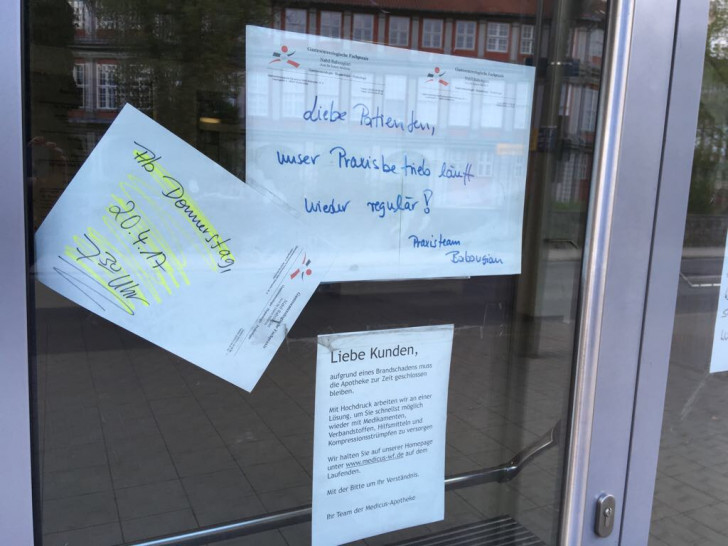 Liebe Patienten,
unser Praxisbetrieb läuft
wieder regulär!
Praxisteam
Ab Donnerstag,
20.4.17
7 30 Uhr
Liebe Kunden,
aufgrund eines Brandschadens muss
die Apotheke zur Zeit geschlossen
bleiben.
Mit Hochdruck arbeiten wir an einer
Lösung, um Sie schnellst möglich
wieder mit Medikamenten,
Verbandstoffen, Hilfsmitteln und
Kompressionsstrümpfen zu versorgen
Wir halten Sie auf unserer Homepage
unter www.medicus-wf.de auf dem
Laufenden.
Mit der Bitte um Ihr Verständnis
Ihr Team der Medicus-Apotheke